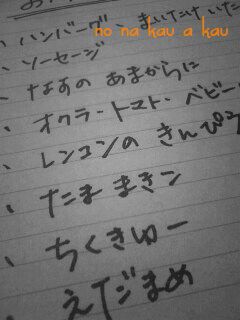 no na kau a kau
、ハンバーグ、まいたけ いた
、ソーセージ
、なすの あまからに
、オクラ・トマト・ベビー
、レンコンの きんぴら
、たま まきン
、ちくきゅー
、えだまめ